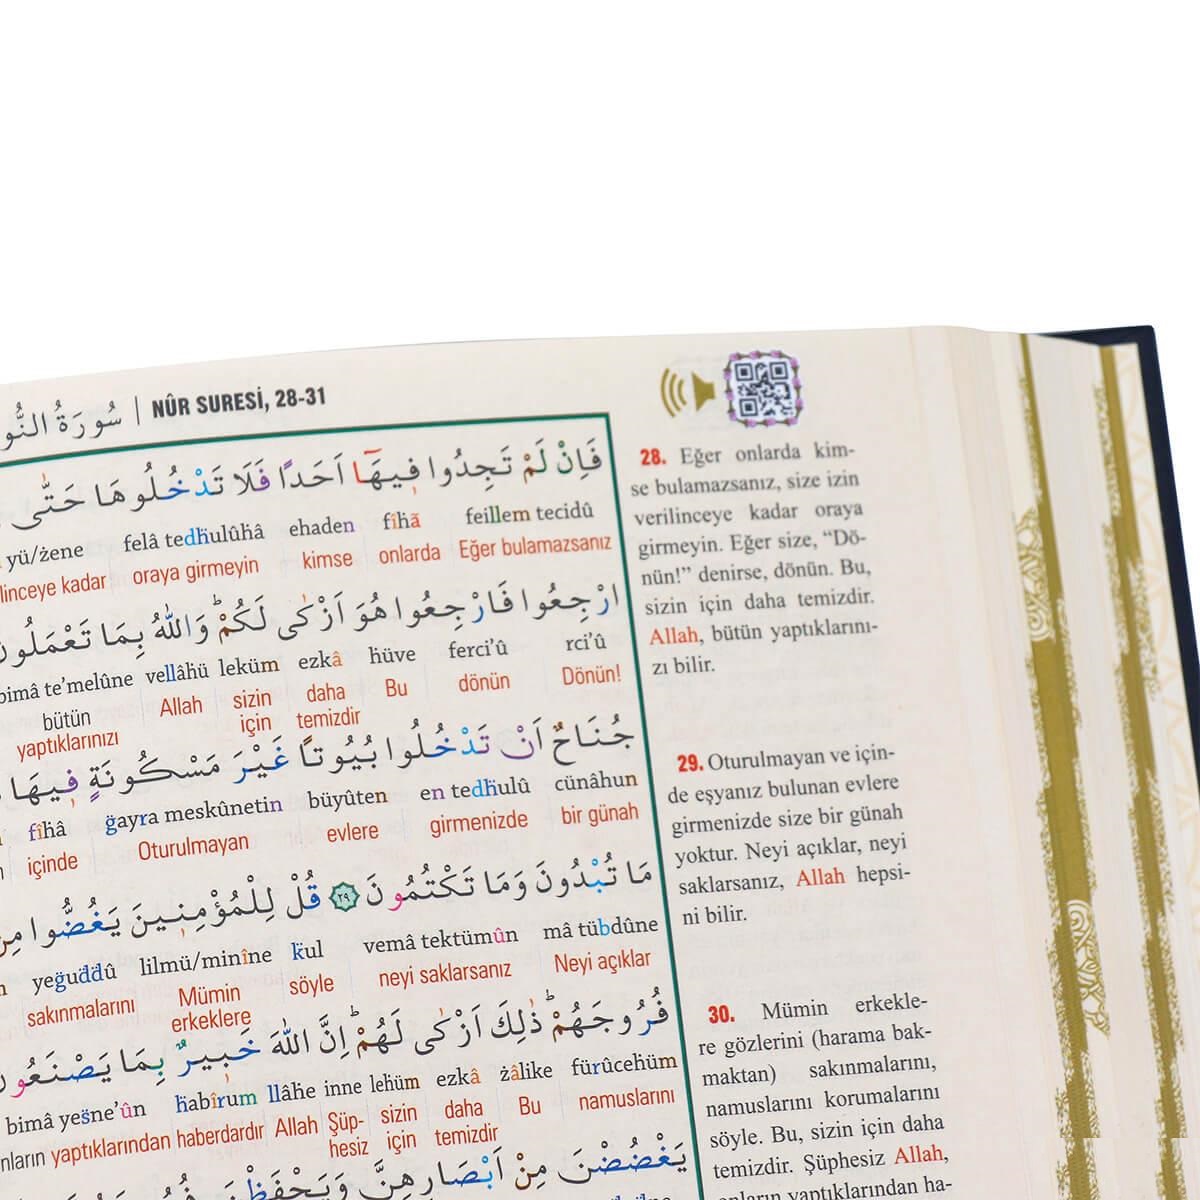 سُورَةُ النُّو | NÛR SURESİ, 28-31
فَاِنْ لَمْ تَجِدُوا فٖيهَٓا اَحَدًا فَلَا تَدْخُلُوهَا حَتّٰى
feillem tecidû fîhâ ehaden felâ tedhulûhâ yü/żene
Eğer bulamazsanız onlarda kimse oraya girmeyin linceye kadar
ارْجِعُوا فَارْجِعُوا هُوَ اَزْكٰى لَكُمْ وَاللّٰهُ بِمَا تَعْمَلُونَ
rci'û ferci'û hüve ezkâ leküm vellâhü bimâ te'melûne
Dönün! dönün Bu daha temizdir sizin için Allah bütün yaptıklarınızı
جُنَاحٌ اَنْ تَدْخُلُوا بُيُوتًا غَيْرَ مَسْكُونَةٍ فٖيهَا
cünâhun en tedhulû büyûten ğayra meskûnetin fîhâ
bir günah girmenizde evlere Oturulmayan içinde
مَا تُبْدُونَ وَمَا تَكْتُمُونَ ﴿٢٩﴾ قُلْ لِلْمُؤْمِنٖينَ يَغُضُّوا مِنْ
mâ tübdûne vemâ tektümûn kul lilmü/minîne yeğuddû
Neyi açıklar neyi saklarsanız söyle Mümin erkeklere sakınmalarını
فُرُوجَهُمْ ذٰلِكَ اَزْكٰى لَهُمْ اِنَّ اللّٰهَ خَبٖيرٌ بِمَا يَصْنَعُونَ
fürûcehüm żâlike ezkâ lehüm inne llâhe habîrum bimâ yesne'ûn
namuslarını Bu daha temizdir sizin için Şüphesiz Allah haberdardır yaptıklarından nların
يَغْضُضْنَ مِنْ اَبْصَارِهِنَّ وَيَحْفَظْنَ
28. Eğer onlarda kim-
se bulamazsanız, size izin
verilinceye kadar oraya
girmeyin. Eğer size, “Dö-
nün!” denirse, dönün. Bu,
sizin için daha temizdir.
Allah, bütün yaptıklarını-
zı bilir.
29. Oturulmayan ve için-
de eşyanız bulunan evlere
girmenizde size bir günah
yoktur. Neyi açıklar, neyi
saklarsanız, Allah hepsi-
ni bilir.
30. Mümin erkekle-
re gözlerini (harama bak-
maktan) sakınmalarını,
namuslarını korumalarını
söyle. Bu, sizin için daha
temizdir. Şüphesiz Allah,
onların yaptıklarından ha-